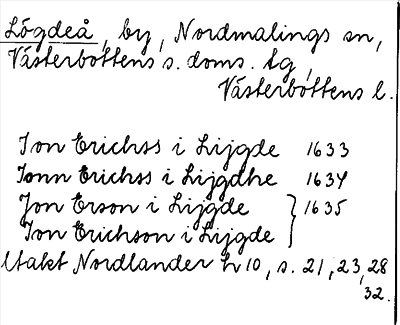 Lögdeå, by, Nordmalings sn,
Västerbottens s. doms. tg,
Västerbottens l.
Jon Erichss i Lijgde 1633
Jonn Erichss i Lijgdhe 1634
Jon Erson i Lijgde } 1635
Jon Erichson i Lijgde
Utakt Nordlander h 10, s. 21, 23, 28
32.